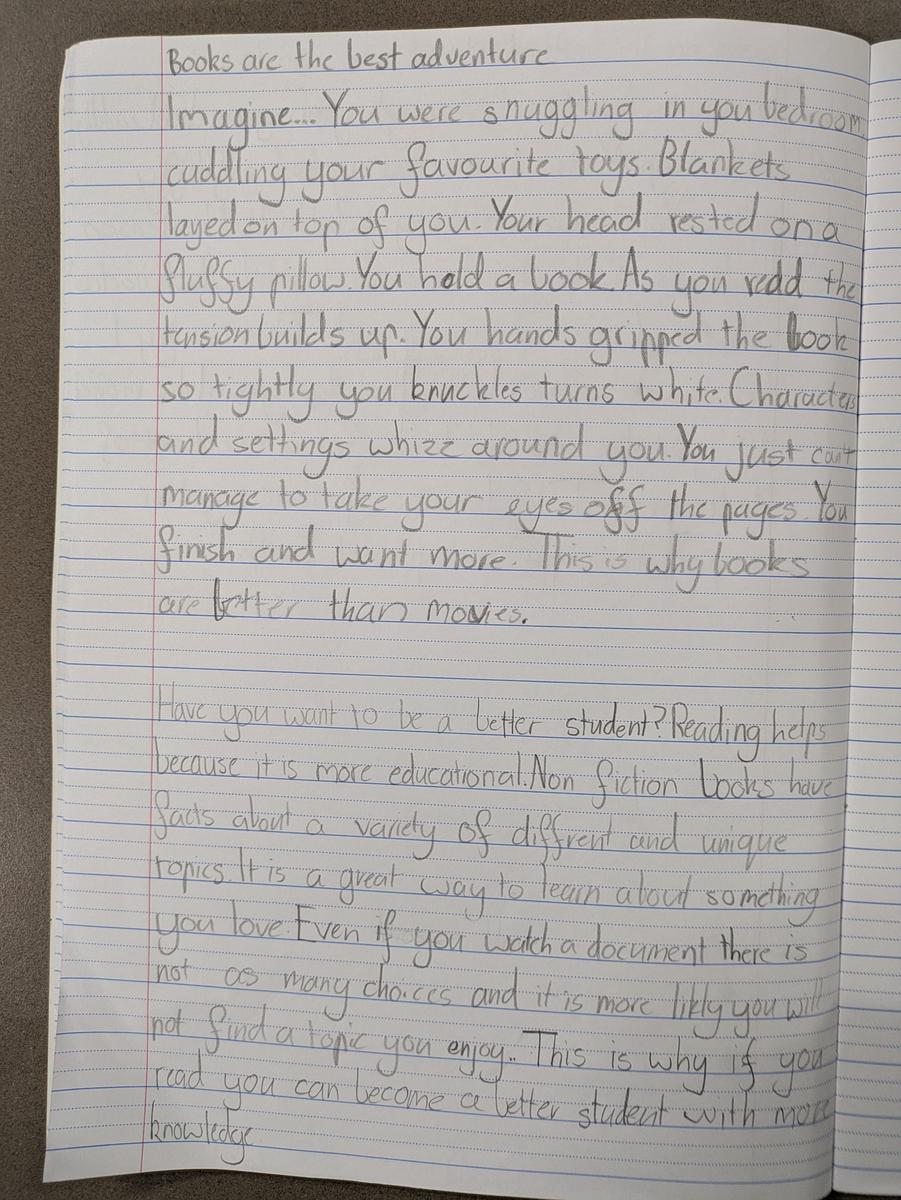 Books are the best adventure
Imagine... You were snuggling in you bedroom
cuddling your favourite toys. Blankets
layed on top of you. Your head rested on a
fluffy pillow. You hold a book. As you redd the
tension builds up. You hands gripped the book
so tightly you knuckles turns white. Characters
and settings whizz around you. You just can't
manage to take your eyes off the pages. You
finish and want more. This is why books
are better than movies.
Have you want to be a better student? Reading helps
because it is more educational. Non fiction books have
facts about a variety of diffrent and unique
topics. It is a great way to learn about something
you love. Even if you watch a document there is
not as many choices and it is more likly you will
not find a topic you enjoy.. This is why if you
read you can become a better student with more
knowledge